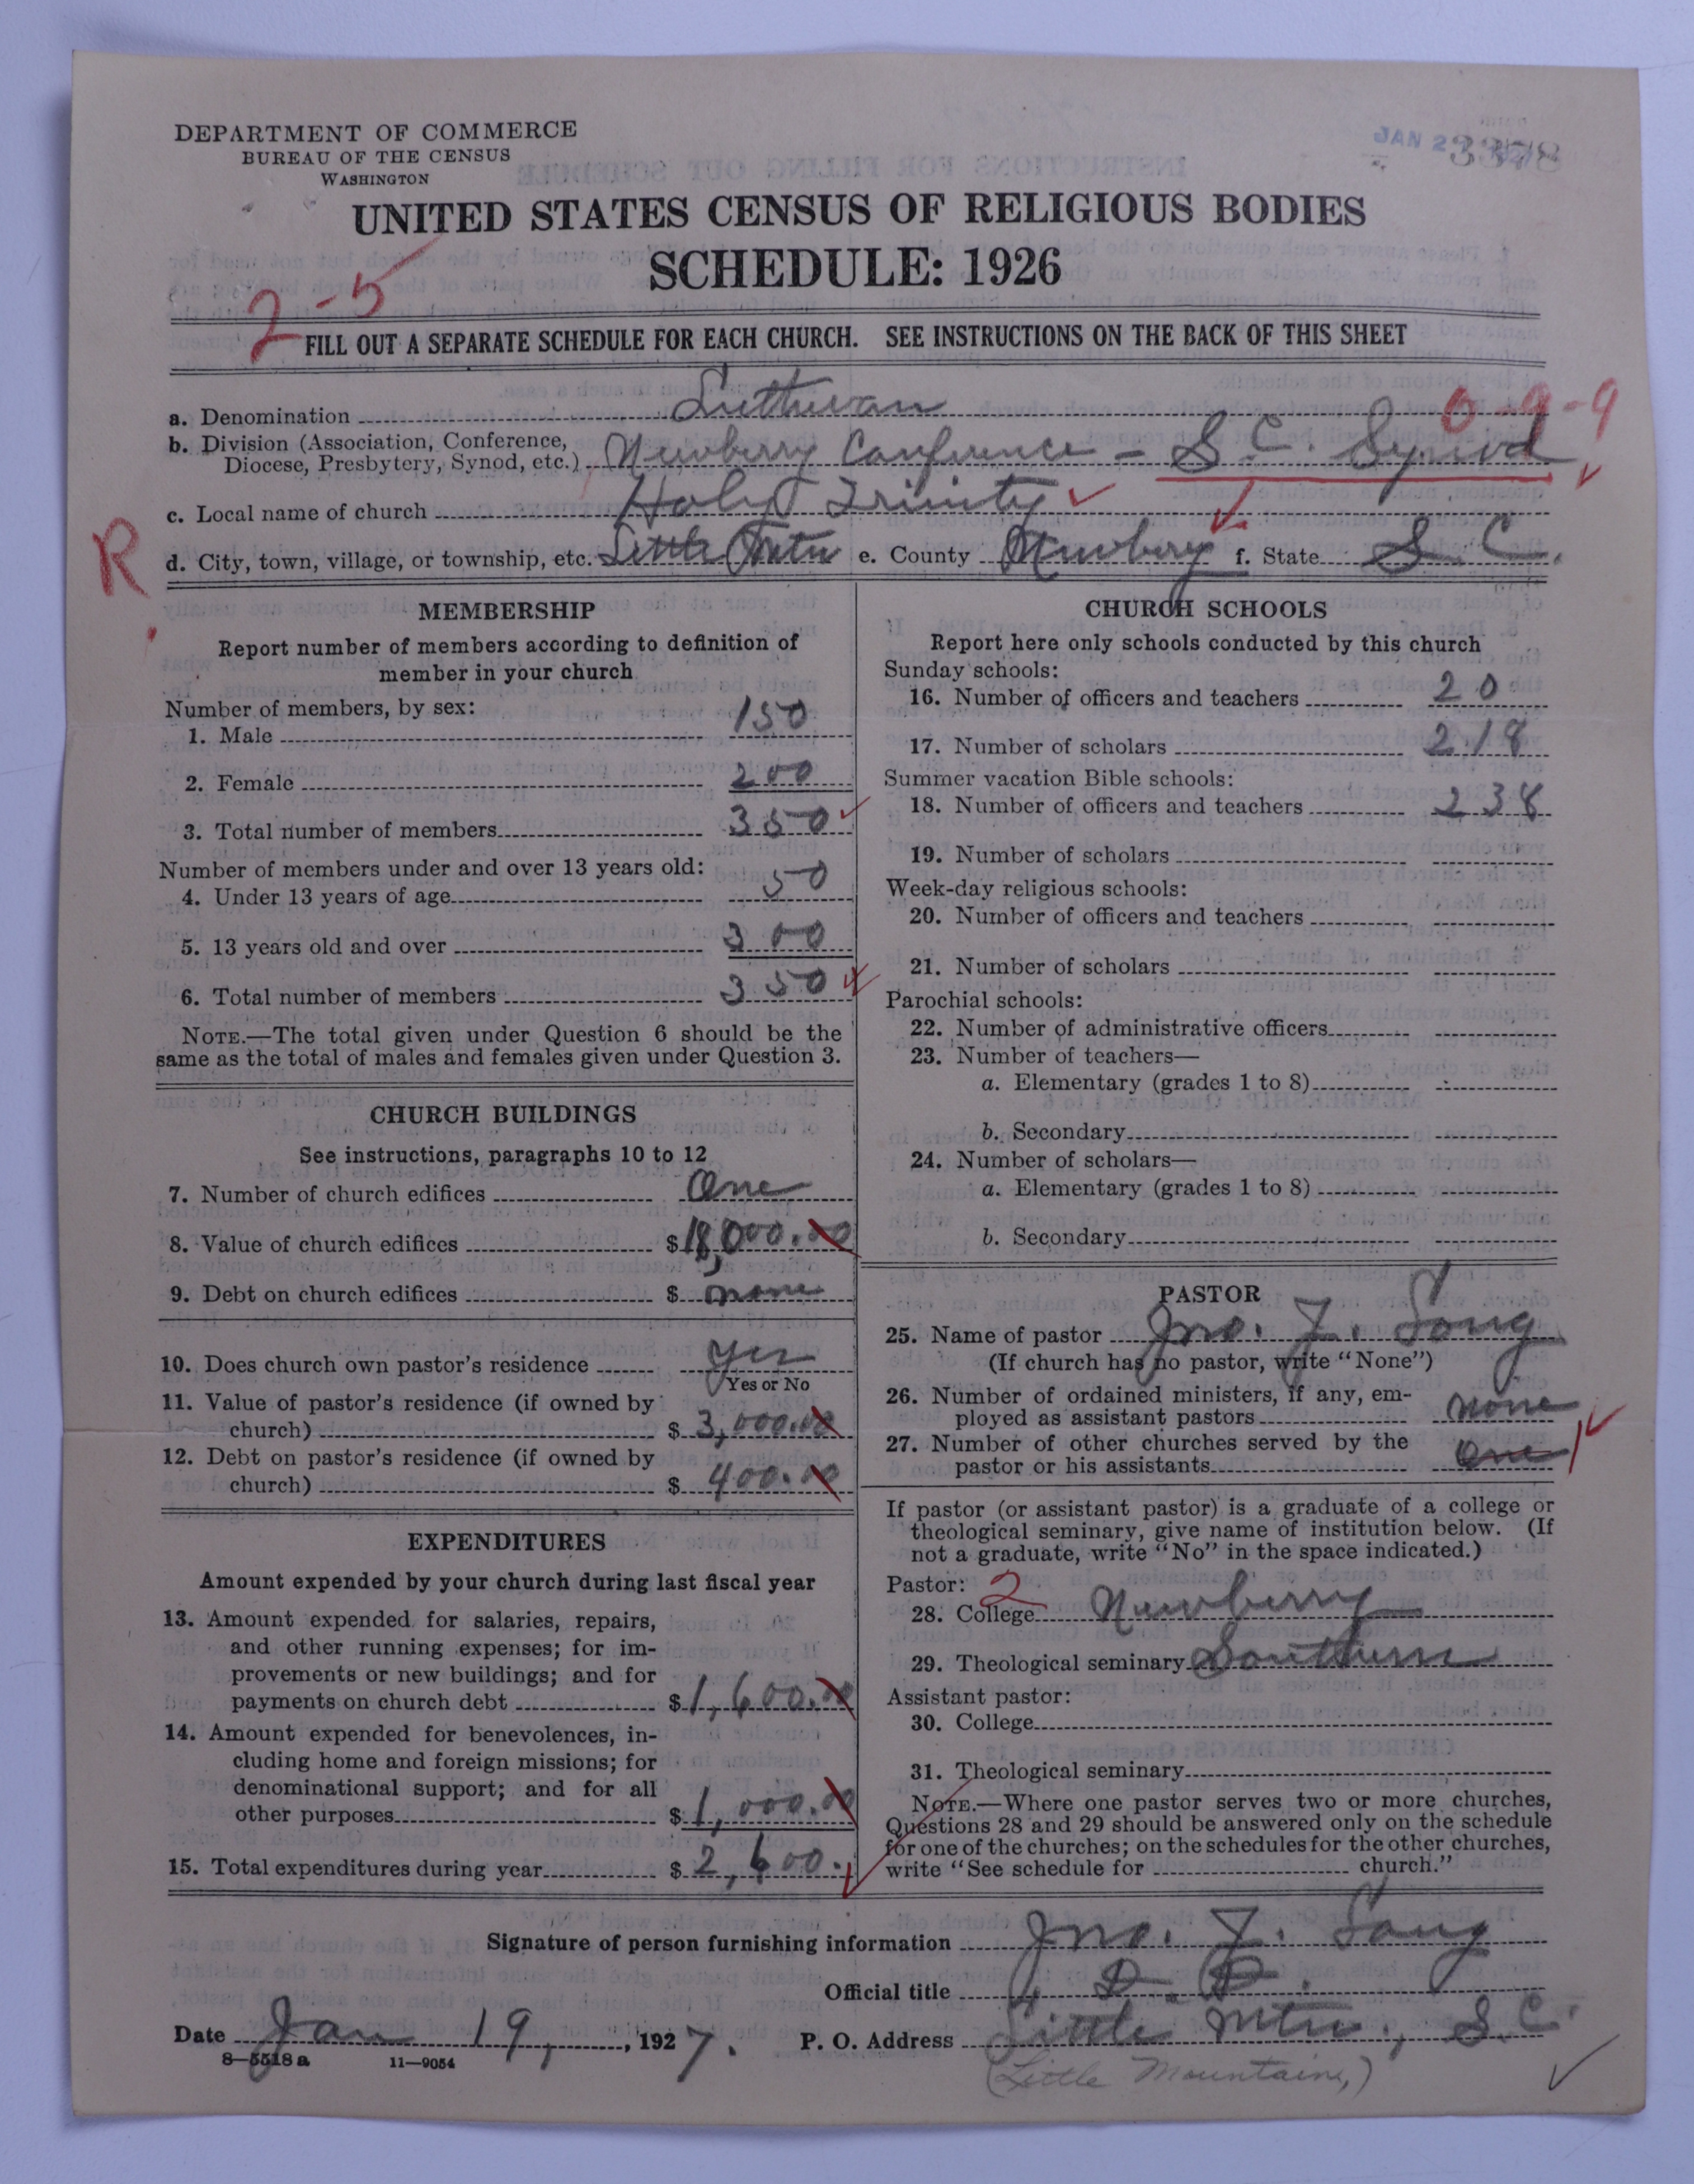 DEPARTMENT OF COMMERCE
BUREAU OF THE CENSUS
WASHINGTON
JAN 2
3378
UNITED STATES CENSUS OF RELIGIOUS BODIES
SCHEDULE: 1926
2-5
FILL OUT A SEPARATE SCHEDULE FOR EACH CHURCH. SEE INSTRUCTIONS ON THE BACK OF THIS SHEET
a. Denomination Lutheran 0-9-9
b. Division (Association, Conference,
Diocese, Presbytery, Synod, etc.) Newberry Conference - S.C. Synod
c. Local name of church Holy Trinity
R
d. City, town, village, or township, etc. Little Mtn e. County Newberry f. State S.C.
MEMBERSHIP
Report number of members according to definition of
member in your church
Number of members, by sex:
1. Male 150
2. Female 200
3. Total number of members 350
Number of members under and over 13 years old:
4. Under 13 years of age 50
5. 13 years old and over 300
6. Total number of members 350
NOTE.—The total given under Question 6 should be the
same as the total of males and females given under Question 3.
CHURCH BUILDINGS
See instructions, paragraphs 10 to 12
7. Number of church edifices One
8. Value of church edifices $18,000.00
9. Debt on church edifices $ none
10. Does church own pastor's residence Yes
Yes or No
11. Value of pastor's residence (if owned by
church) $ 3,000.00
12. Debt on pastor's residence (if owned by
church) $ 400.00
EXPENDITURES
Amount expended by your church during last fiscal year
13. Amount expended for salaries, repairs,
and other running expenses; for im-
provements or new buildings; and for
payments on church debt $1,600.00
14. Amount expended for benevolences, in-
cluding home and foreign missions; for
denominational support; and for all
other purposes $1,000.00
15. Total expenditures during year $2,600.
CHURCH SCHOOLS
Report here only schools conducted by this church
Sunday schools:
16. Number of officers and teachers 20
17. Number of scholars 218
Summer vacation Bible schools:
18. Number of officers and teachers 238
19. Number of scholars
Week-day religious schools:
20. Number of officers and teachers
21. Number of scholars
Parochial schools:
22. Number of administrative officers
23. Number of teachers—
a. Elementary (grades 1 to 8)
b. Secondary
24. Number of scholars—
a. Elementary (grades 1 to 8)
b. Secondary
PASTOR
25. Name of pastor Jno. J. Long
(If church has no pastor, write "None")
26. Number of ordained ministers, if any, em-
ployed as assistant pastors none
27. Number of other churches served by the
pastor or his assistants One 1
If pastor (or assistant pastor) is a graduate of a college or
theological seminary, give name of institution below. (If
not a graduate, write "No" in the space indicated.)
Pastor: 2
28. College Newberry
29. Theological seminary Southern
Assistant pastor:
30. College
31. Theological seminary
NOTE.—Where one pastor serves two or more churches,
Questions 28 and 29 should be answered only on the schedule
for one of the churches; on the schedules for the other churches,
write "See schedule for church."
Signature of person furnishing information Jno. J. Long
Official title D. D.
Date Jan 19, 1927. P. O. Address Little Mtn., S.C.
8—5518 a 11—9054
(Little Mountain,)